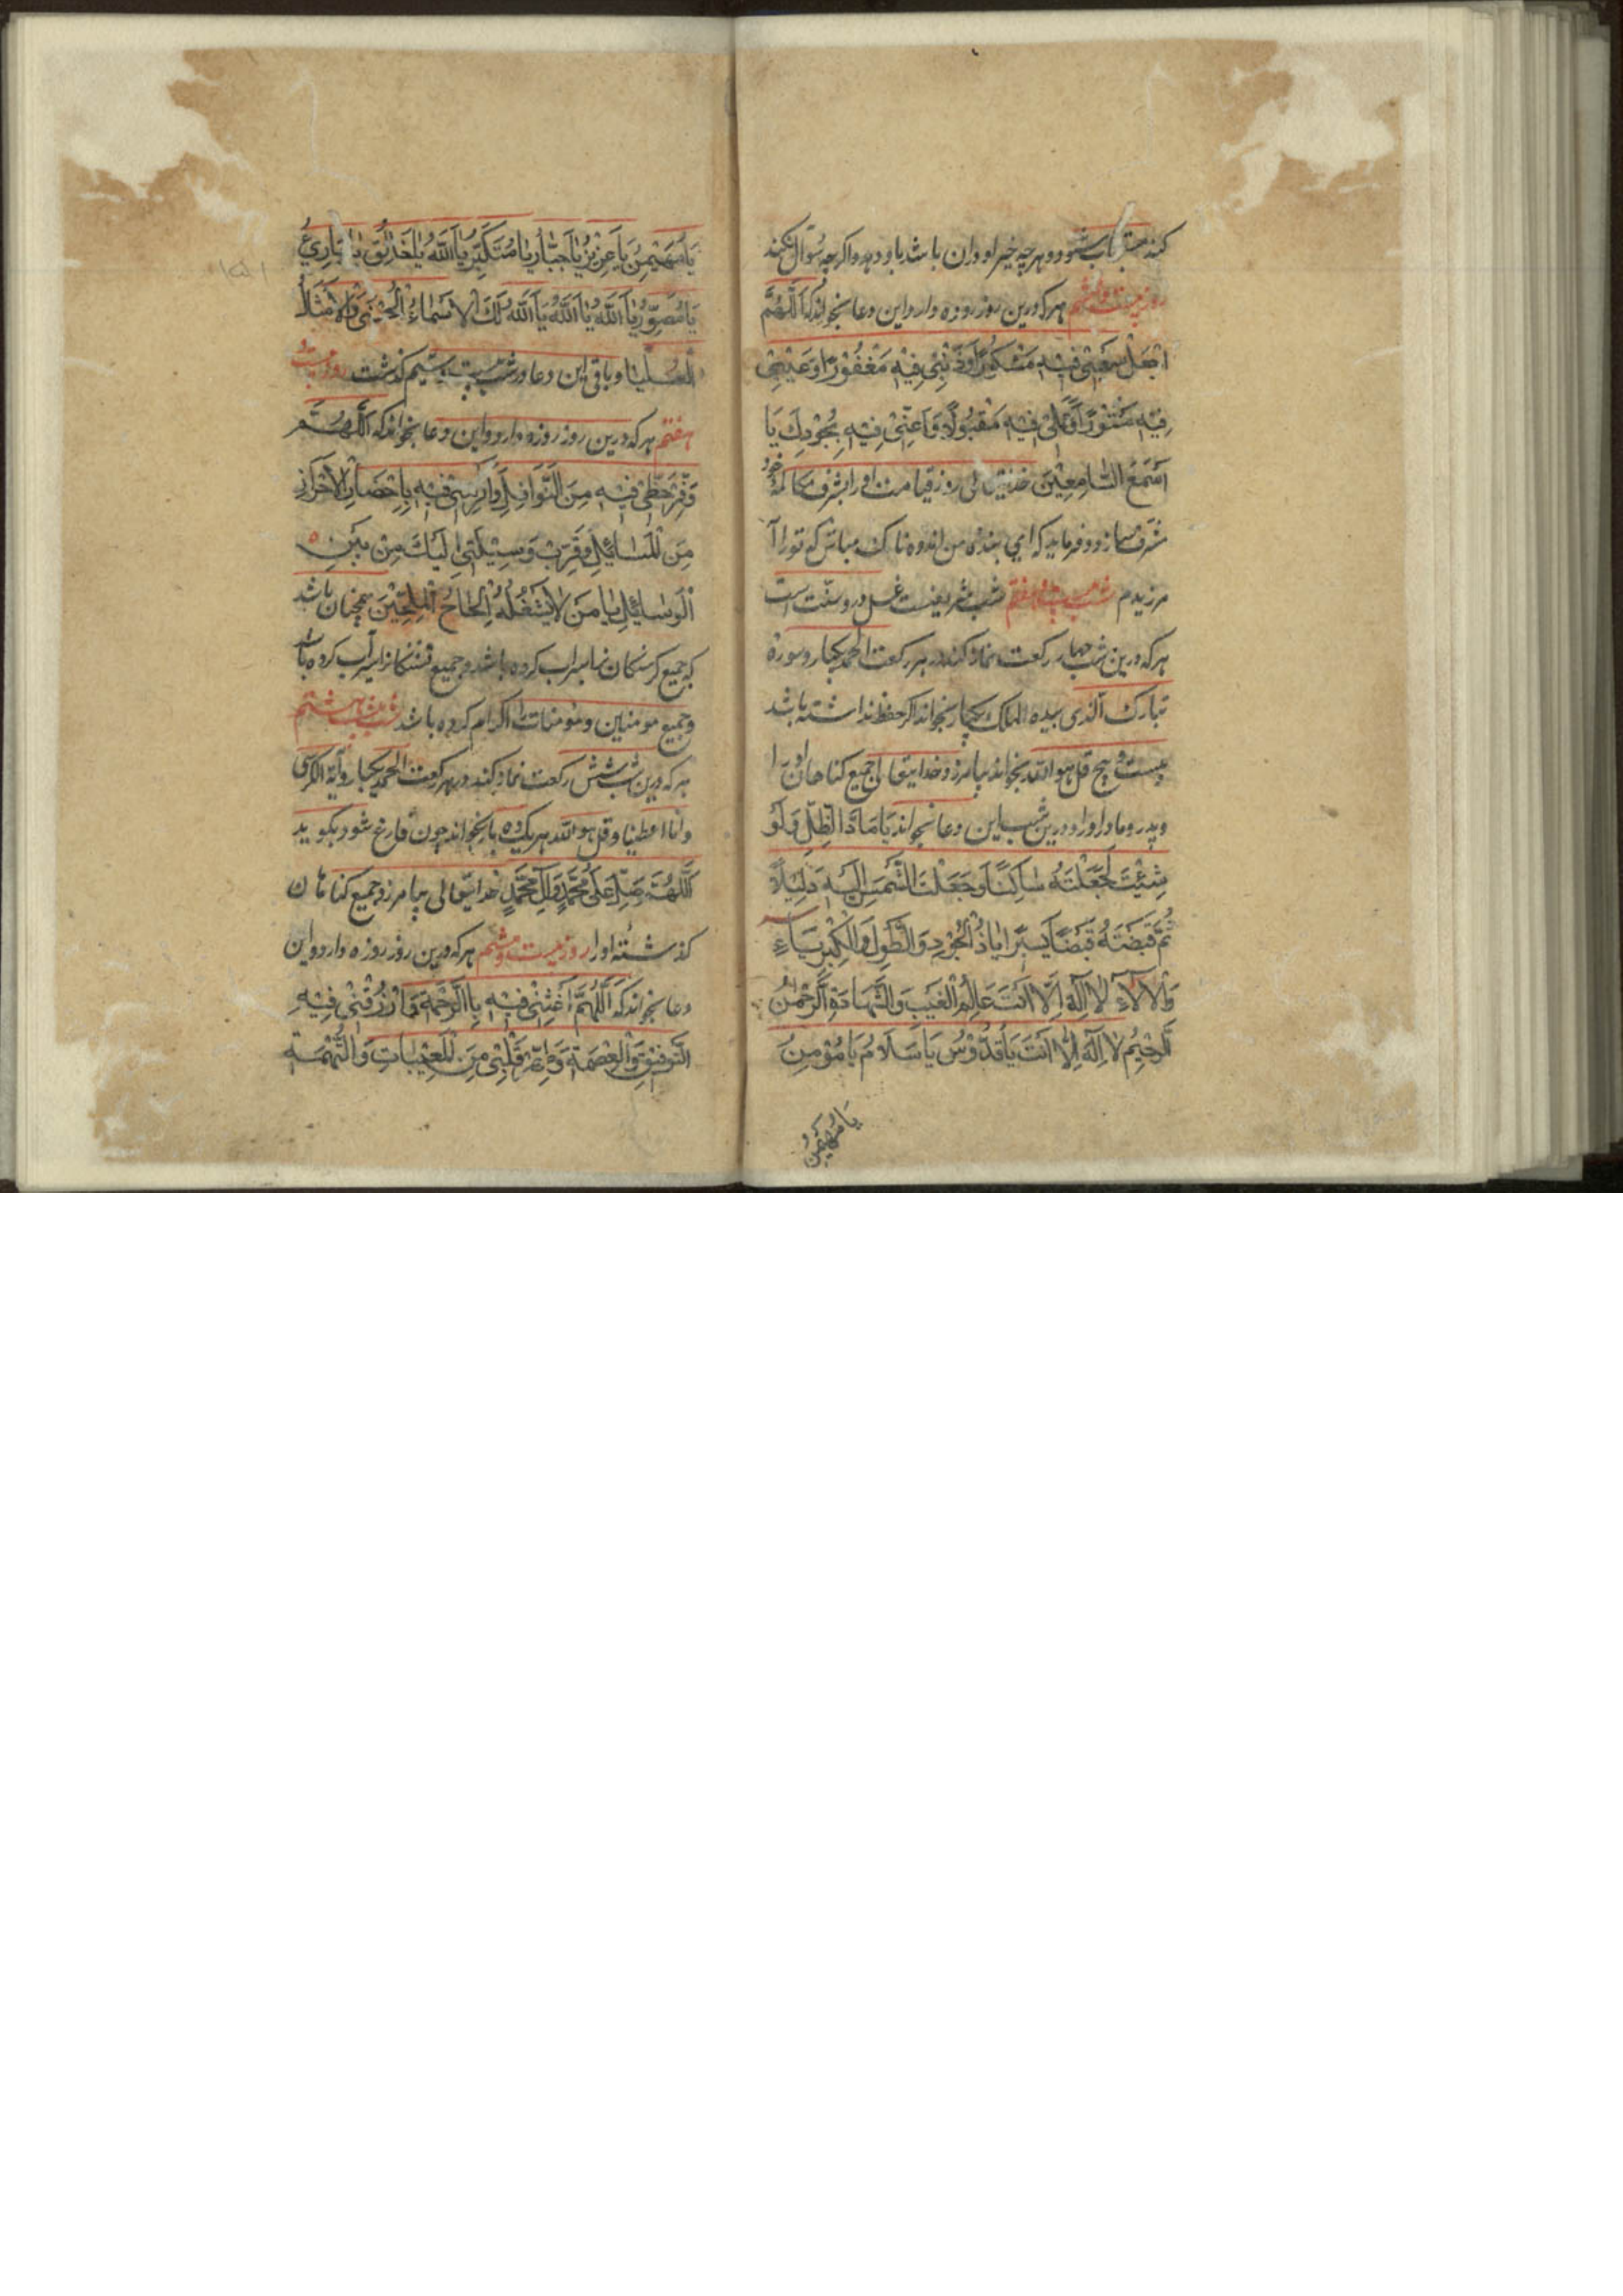 کند مستجاب شود و هر چه خیر او در ان باشد باو دهد و اکرچه سؤال نکند
روز بیست و ششم هرکه درین روز روزه دارد و این دعا بخواند که اَللّهُمَّ
اجْعَلْ سَعْیِی فِیهِ مَشْکُورًا وَذَنْبِی فِیهِ مَغْفُورًا وَعَیْبِی
فِیهِ مَسْتُورًا وَعَمَلِی فِیهِ مَقْبُولًا وَاَعِنِّی فِیهِ بِجُودِكَ یَا
اَسْمَعَ السَّامِعِینَ خدایتعالی روز قیامت او را بشرف مکالمه خود
مشرف سازد و فرماید که ای بنده من اندوه ناک مباش که تو را آ
مرزیدم شب بیست و هفتم شب شریفست غسل درو سنت است
هرکه درین شب چهار رکعت نماز کند در هر رکعت الحمد یکبار و سورة
تبارک الذی بیده الملک یکبار بخواند اکر حفظ نداشته باشد
بیست و پنج قل هو الله بخواند بیامرزد خدایتعالی جمیع کناهان او را
و پدر و مادر او را و درین شب این دعا بخواند یَا مَادَّ الظِّلِّ وَلَوْ
شِئْتَ لَجَعَلْتَهُ سَاکِنًا وَجَعَلْتَ الشَّمْسَ اِلَیْهِ دَلِیلًا
ثُمَّ قَبَضْتَهُ قَبْضًا یَسِیرًا یَا ذَا الْجُودِ وَالطَّوْلِ وَالْکِبْرِیَاءِ
وَالْآلَاءِ لَا اِلٰهَ اِلَّا اَنْتَ عَالِمُ الْغَیْبِ وَالشَّهَادَةِ الرَّحْمٰنُ
الرَّحِیمُ لَا اِلٰهَ اِلَّا اَنْتَ یَا قُدُّوسُ یَا سَلَامُ یَا مُؤْمِنُ
یَا مُهَیْمِنُ
یَا مُهَیْمِنُ یَا عَزِیزُ یَا جَبَّارُ یَا مُتَکَبِّرُ یَا اَللّٰهُ یَا خَالِقُ یَا بَارِئُ
یَا مُصَوِّرُ یَا اَللّٰهُ یَا اَللّٰهُ یَا اَللّٰهُ لَكَ الْاَسْمَاءُ الْحُسْنٰی وَالْاَمْثَالُ
الْعُلْیَا و باقی این دعا در شب بیستم کذشت روز بیست و
هفتم هرکه درین روز روزه دارد و این دعا بخواند که اَللّهُمَّ
وَفِّرْ حَظِّی فِیهِ مِنَ النَّوَافِلِ وَاَکْرِمْنِی فِیهِ بِاِحْضَارِ الْاَحْرَازِ
مِنَ الْمَسَائِلِ وَقَرِّبْ وَسِیلَتِی اِلَیْكَ مِنْ بَیْنِ
الْوَسَائِلِ یَا مَنْ لَا یَشْغَلُهُ اِلْحَاحُ الْمُلِحِّینَ همچنان باشد
که جمیع کرسنکان را سیراب کرده باشد و جمیع تشنکانرا سیراب کرده باشد
و جمیع مومنین و مومنات را اکرام کرده باشد شب بیست و هشتم
هرکه درین شب شش رکعت نماز بکند در هر رکعت الحمد یکبار و آیة الکرسی
و انا اعطینا و قل هو الله هر یک ده بار بخواند چون فارغ شود بکوید
اَللّٰهُمَّ صَلِّ عَلٰی مُحَمَّدٍ وَآلِ مُحَمَّدٍ خدایتعالی بیامرزد جمیع کناهان
کذشته او را روز بیست و هشتم هرکه درین روز روزه دارد و این
دعا بخواند که اَللّٰهُمَّ اغْشِنِی فِیهِ بِالرَّحْمَةِ وَارْزُقْنِی فِیهِ
التَّوْفِیقَ وَالْعِصْمَةَ وَطَهِّرْ قَلْبِی مِنَ الْعِیَابَاتِ وَالتُّهْمَةِ